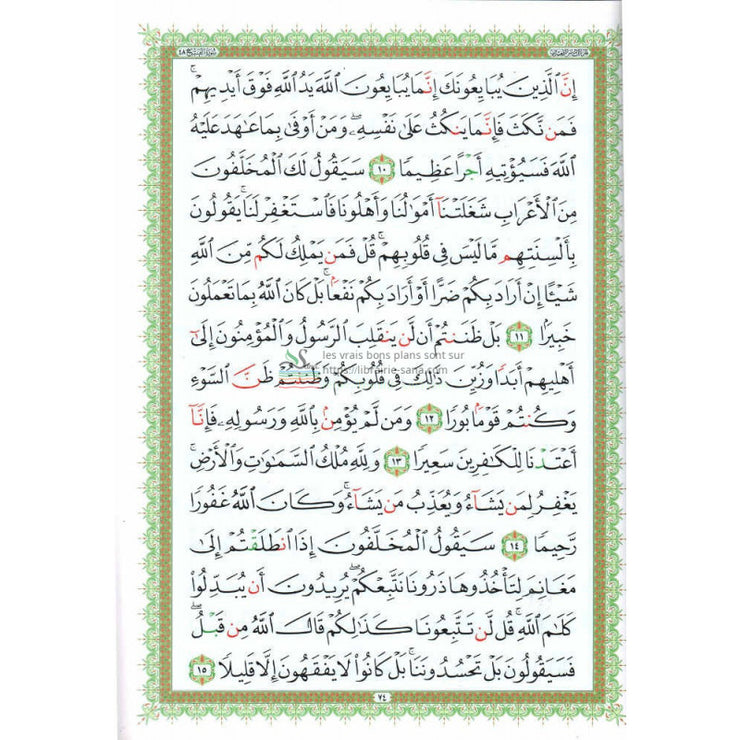 سورة الفتح ٤٨
إِنَّ ٱلَّذِينَ يُبَايِعُونَكَ إِنَّمَا يُبَايِعُونَ ٱللَّهَ يَدُ ٱللَّهِ فَوْقَ أَيْدِيهِمْ ۚ
فَمَن نَّكَثَ فَإِنَّمَا يَنكُثُ عَلَىٰ نَفْسِهِۦ ۖ وَمَنْ أَوْفَىٰ بِمَا عَٰهَدَ عَلَيْهُ
ٱللَّهَ فَسَيُؤْتِيهِ أَجْرًا عَظِيمًا ١٠ سَيَقُولُ لَكَ ٱلْمُخَلَّفُونَ
مِنَ ٱلْأَعْرَابِ شَغَلَتْنَآ أَمْوَٰلُنَا وَأَهْلُونَا فَٱسْتَغْفِرْ لَنَا ۚ يَقُولُونَ
بِأَلْسِنَتِهِم مَّا لَيْسَ فِى قُلُوبِهِمْ ۚ قُلْ فَمَن يَمْلِكُ لَكُم مِّنَ ٱللَّهِ
شَيْـًٔا إِنْ أَرَادَ بِكُمْ ضَرًّا أَوْ أَرَادَ بِكُمْ نَفْعًۢا ۚ بَلْ كَانَ ٱللَّهُ بِمَا تَعْمَلُونَ
خَبِيرًۢا ١١ بَلْ ظَنَنتُمْ أَن لَّن يَنقَلِبَ ٱلرَّسُولُ وَٱلْمُؤْمِنُونَ إِلَىٰٓ
les vrais bons plans sont sur
https://librairie-sana.com
أَهْلِيهِمْ أَبَدًا وَزُيِّنَ ذَٰلِكَ فِى قُلُوبِكُمْ وَظَنَنتُمْ ظَنَّ ٱلسَّوْءِ
وَكُنتُمْ قَوْمًۢا بُورًا ١٢ وَمَن لَّمْ يُؤْمِنۢ بِٱللَّهِ وَرَسُولِهِۦ فَإِنَّآ
أَعْتَدْنَا لِلْكَٰفِرِينَ سَعِيرًا ١٣ وَلِلَّهِ مُلْكُ ٱلسَّمَٰوَٰتِ وَٱلْأَرْضِ ۚ
يَغْفِرُ لِمَن يَشَآءُ وَيُعَذِّبُ مَن يَشَآءُ ۚ وَكَانَ ٱللَّهُ غَفُورًا
رَّحِيمًا ١٤ سَيَقُولُ ٱلْمُخَلَّفُونَ إِذَا ٱنطَلَقْتُمْ إِلَىٰ
مَغَانِمَ لِتَأْخُذُوهَا ذَرُونَا نَتَّبِعْكُمْ ۖ يُرِيدُونَ أَن يُبَدِّلُوا۟
كَلَٰمَ ٱللَّهِ ۚ قُل لَّن تَتَّبِعُونَا كَذَٰلِكُمْ قَالَ ٱللَّهُ مِن قَبْلُ ۖ
فَسَيَقُولُونَ بَلْ تَحْسُدُونَنَا ۚ بَلْ كَانُوا۟ لَا يَفْقَهُونَ إِلَّا قَلِيلًا ١٥
٧٤